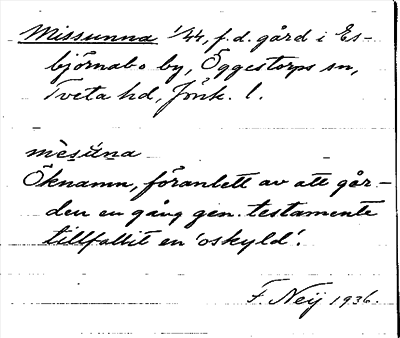 Missunna 1/44, f.d. gård i Es-
björnabo by, Öggestorps sn,
Tveta hd, Jönk. l.
mèsúna
Öknamn, föranlett av att går-
den en gång gen. testamente
tillfallit en 'oskyld'.
F. Neij 1936.